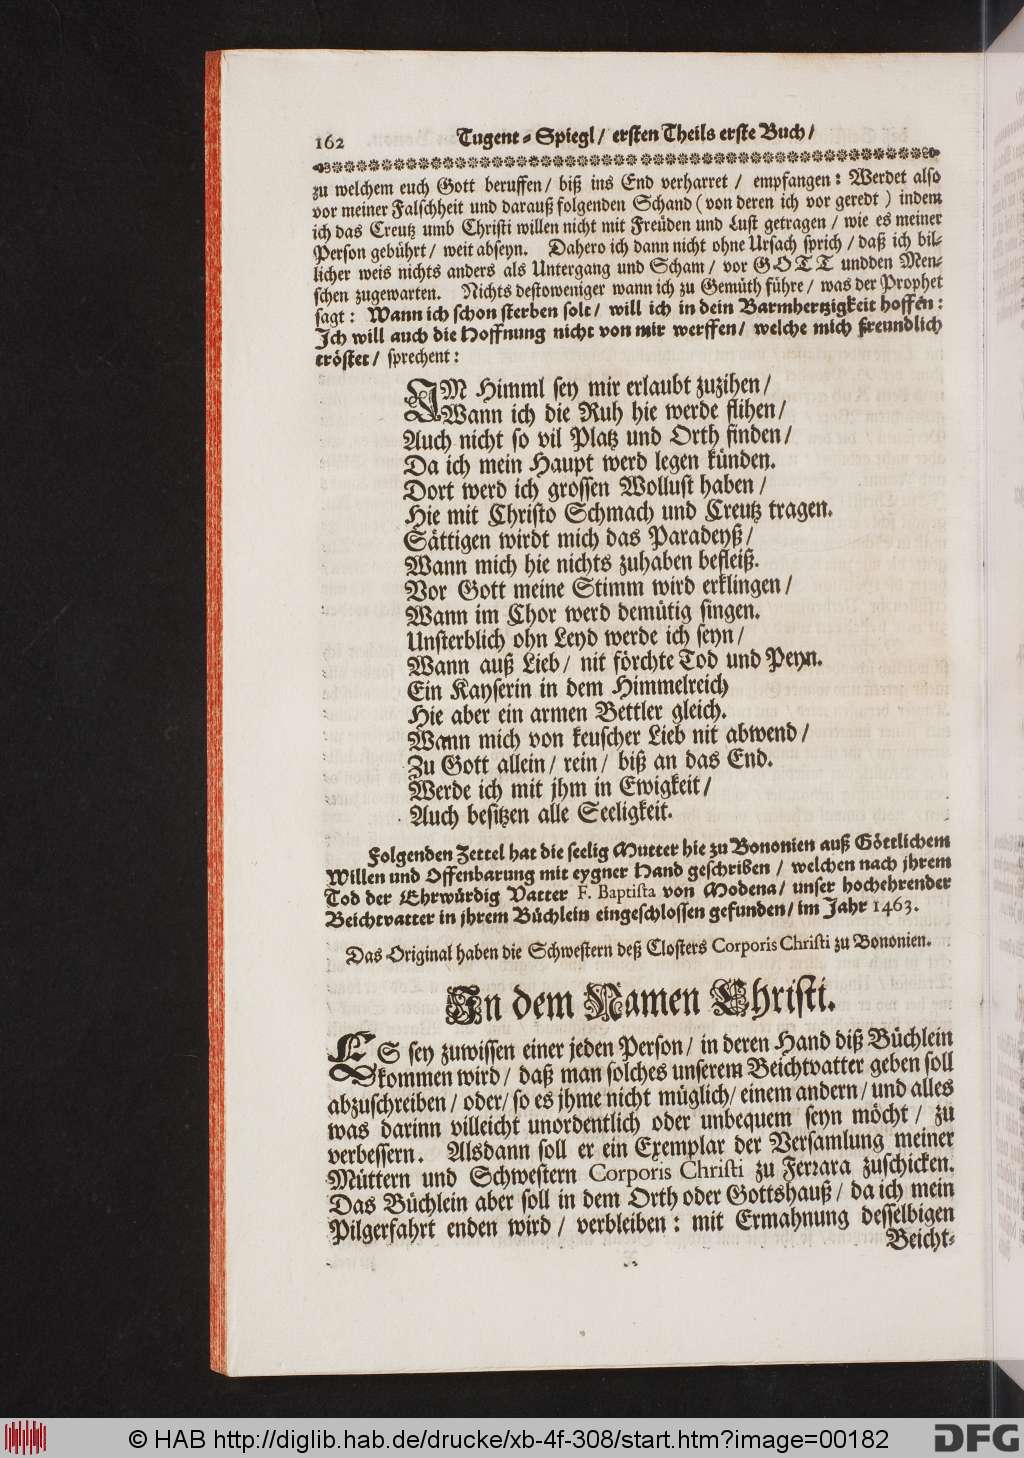 162 Tugent-Spiegl/ ersten Theils erste Buch/
zu welchem euch Gott beruffen/ biß ins End verharret / empfangen: Werdet also
vor meiner Falschheit und darauß folgenden Schand (von deren ich vor geredt) indem
ich das Creutz umb Christi willen nicht mit Freüden und Lust getragen / wie es meiner
Person gebührt/ weit abseyn. Dahero ich dann nicht ohne Ursach sprich / daß ich bil-
licher weis nichts anders als Untergang und Scham/ vor GOTT undden Men-
schen zugewarten. Nichts destoweniger wann ich zu Gemüth führe/ was der Prophet
sagt: Wann ich schon sterben solt/ will ich in dein Barmhertzigkeit hoffen:
Ich will auch die Hoffnung nicht von mir werffen/ welche mich freundlich
tröstet/ sprechent:
IM Himml sey mir erlaubt zuzihen/
Wann ich die Ruh hie werde flihen/
Auch nicht so vil Platz und Orth finden/
Da ich mein Haupt werd legen künden.
Dort werd ich grossen Wollust haben /
Hie mit Christo Schmach und Creutz tragen.
Sättigen wirdt mich das Paradeyß/
Wann mich hie nichts zuhaben befleiß.
Vor Gott meine Stimm wird erklingen/
Wann im Chor werd demütig singen.
Unsterblich ohn Leyd werde ich seyn/
Wann auß Lieb/ nit förchte Tod und Peyn.
Ein Kayserin in dem Himmelreich
Hie aber ein armen Bettler gleich.
Wann mich von keuscher Lieb nit abwend/
Zu Gott allein/ rein/ biß an das End.
Werde ich mit jhm in Ewigkeit/
Auch besitzen alle Seeligkeit.
Folgenden Zettel hat die seelig Mutter hie zu Bononien auß Göttlichem
Willen und Offenbarung mit eygner Hand geschriben/ welchen nach jhrem
Tod der Ehrwürdig Vatter F. Baptista von Modena/ unser hochehrender
Beichtvatter in jhrem Büchlein eingeschlossen gefunden/ im Jahr 1463.
Das Original haben die Schwestern deß Closters Corporis Christi zu Bononien.
In dem Namen Christi.
ES sey zuwissen einer jeden Person/ in deren Hand diß Büchlein
kommen wird/ daß man solches unserem Beichtvatter geben soll
abzuschreiben/ oder/ so es jhme nicht müglich/ einem andern/ und alles
was darinn villeicht unordentlich oder unbequem seyn möcht/ zu
verbessern. Alsdann soll er ein Exemplar der Versamlung meiner
Müttern und Schwestern Corporis Christi zu Ferrara zuschicken.
Das Büchlein aber soll in dem Orth oder Gottshauß/ da ich mein
Pilgerfahrt enden wird/ verbleiben: mit Ermahnung desselbigen
Beicht-
© HAB http://diglib.hab.de/drucke/xb-4f-308/start.htm?image=00182
DFG